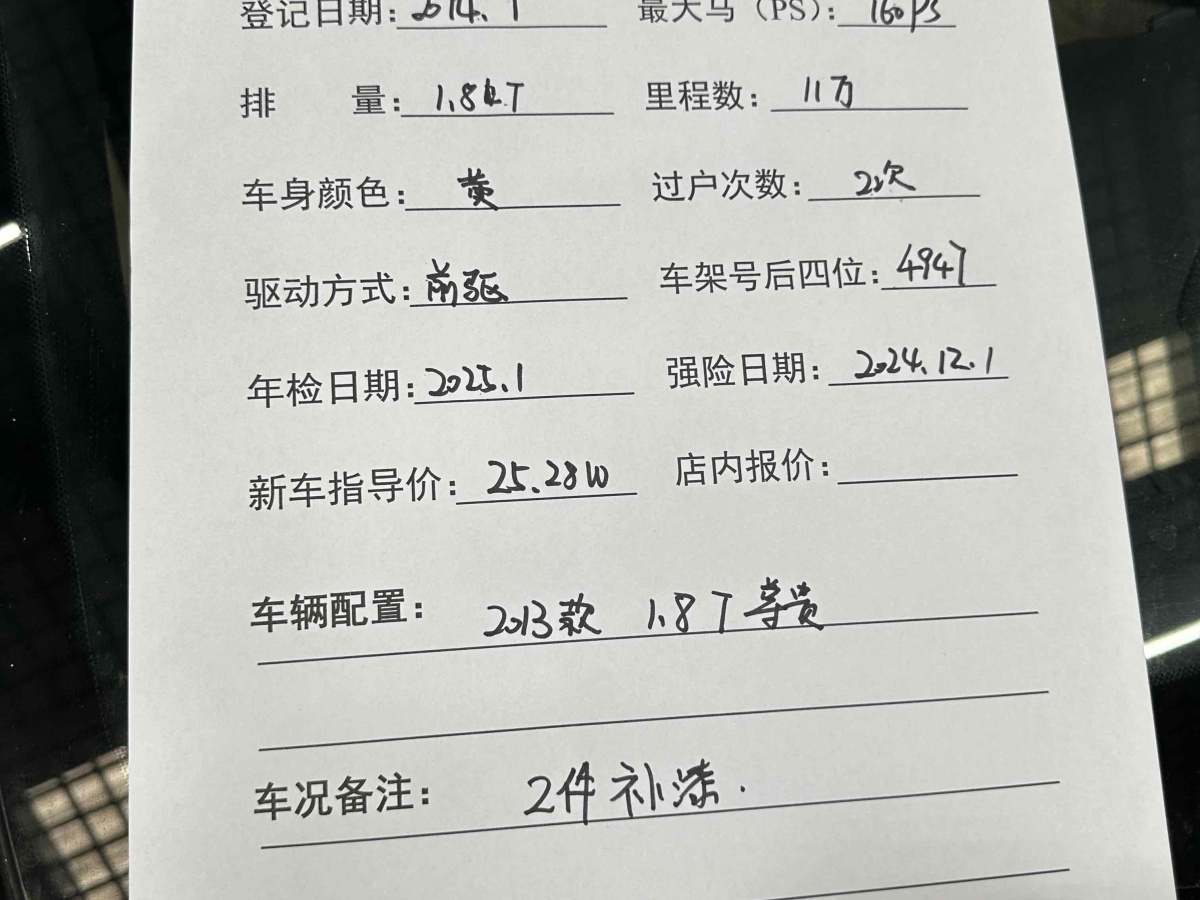 登记日期: 2014.1 最大马(PS): 160PS
排 量: 1.8LT 里程数: 11万
车身颜色: 黄 过户次数: 2次
驱动方式: 前驱 车架号后四位: 4947
年检日期: 2025.1 强险日期: 2024.12.1
新车指导价: 25.28W 店内报价:
车辆配置: 2013款 1.8T 尊贵
车况备注: 2件补漆.